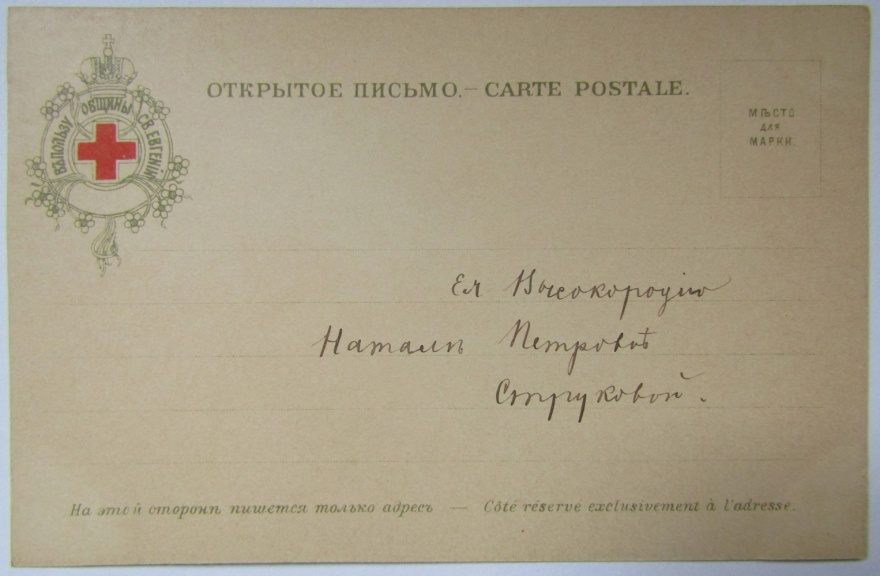 ВЪ ПОЛЬЗУ ОБЩИНЫ СВ. ЕВГЕНІИ
ОТКРЫТОЕ ПИСЬМО.— CARTE POSTALE.
МѢСТО
ДЛЯ
МАРКИ.
Ея Высокородію
Наталіѣ Петровнѣ
Струковой.
На этой сторонѣ пишется только адресъ — Côté réservé exclusivement à l'adresse.